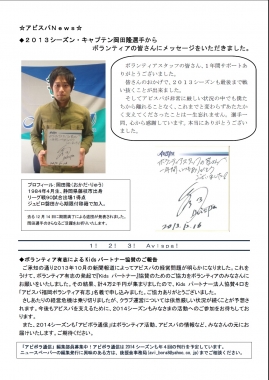 ☆アビスパNews☆
◆2013シーズン・キャプテン岡田隆選手から
ボランティアの皆さんにメッセージをいただきました。
ボランティアスタッフの皆さん、1年間サポートあ
りがとうございました。
皆さんのおかげで、2013シーズンも最後まで戦
い抜くことが出来ました。
そしてアビスパが非常に厳しい状況の中でも僕た
ちから離れることなく、これまでと変わらずあたたか
く支えてくださったことは一生忘れません。選手一
同、心から感謝しています。本当にありがとうござい
ました。
プロフィール:岡田隆(おかだ・りゅう)
1984年4月8日、静岡県藤枝市出身
2013.12.16
1! 2! 3! Avispa!
◆ボランティア有志によるKidsパートナー協賛のご報告
ご承知の通り2013年10月の新聞報道によってアビスパの経営問題が明らかになりました。これを
うけて、ボランティア有志の発起で「Kidsパートナー」協賛のためのご協力をボランティアのみなさんに
お願いをいたしました。その結果、計4万2千円が集まりましたので、Kidsパートナー法人協賛4口を
「アビスパ福岡ボランティア有志」名義で申し込みました。ご協力ありがとうございました。
さしあたりの経営危機は乗り切りましたが、クラブ運営については依然厳しい状況が続くことが予想さ
れます。今後もアビスパを支えるために、2014シーズンもみなさまの活動へのご参加をお待ちしてお
ります。
また、2014シーズンも「アビボラ通信」はボランティア活動、アビスパの情報など、みなさんの元にお
届けいたします。ご期待ください。